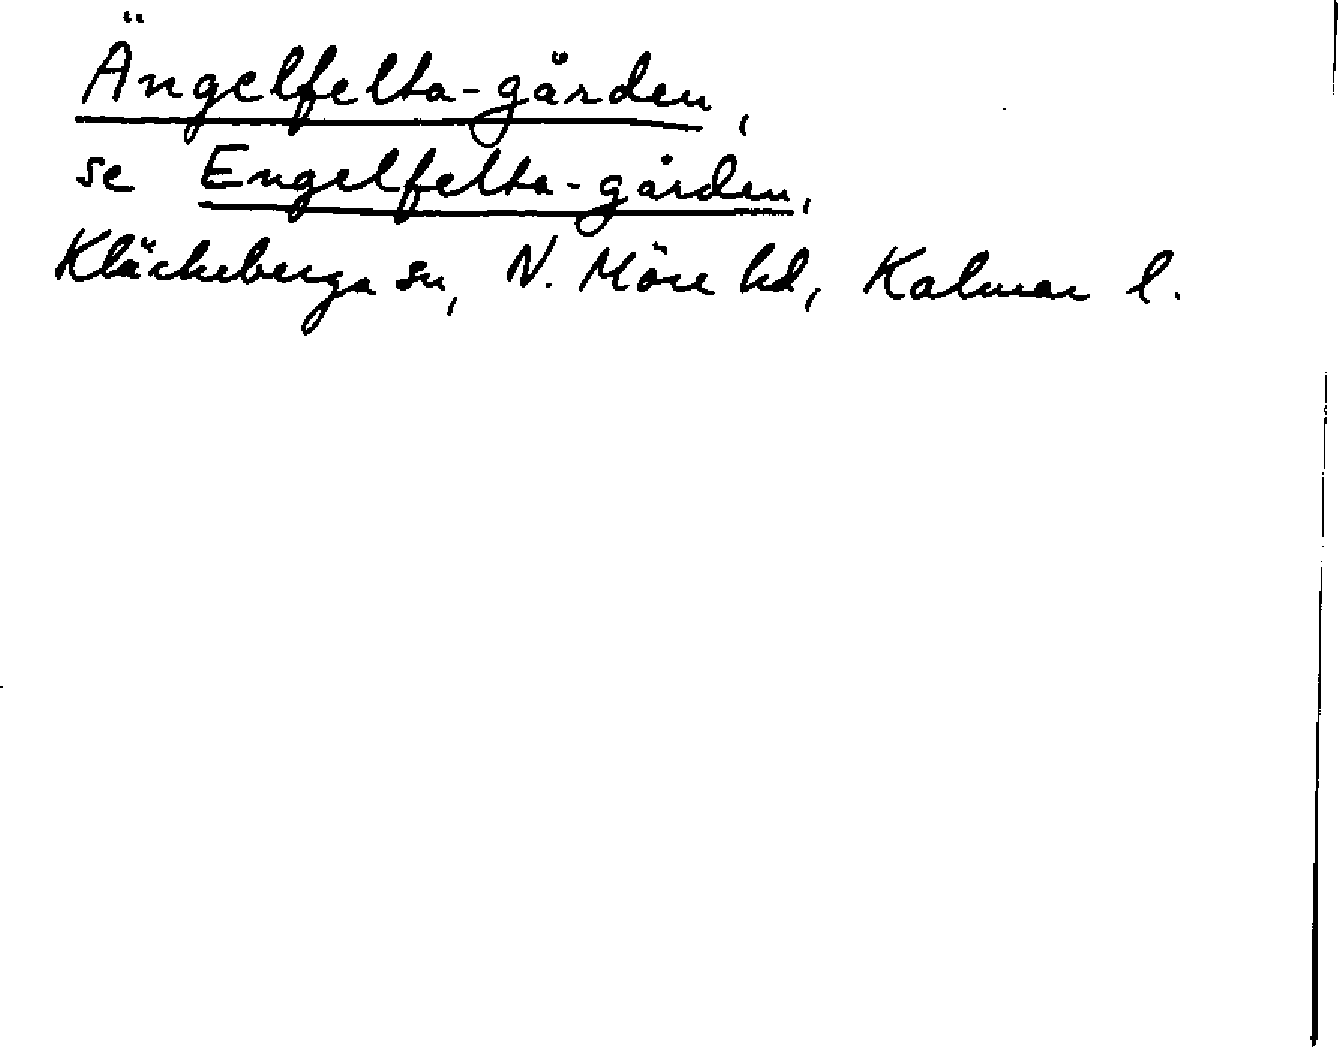 Ängelfelta-gården,
se Engelfelta-gården,
Kläckeberga sn, N. Möre hd, Kalmar l.